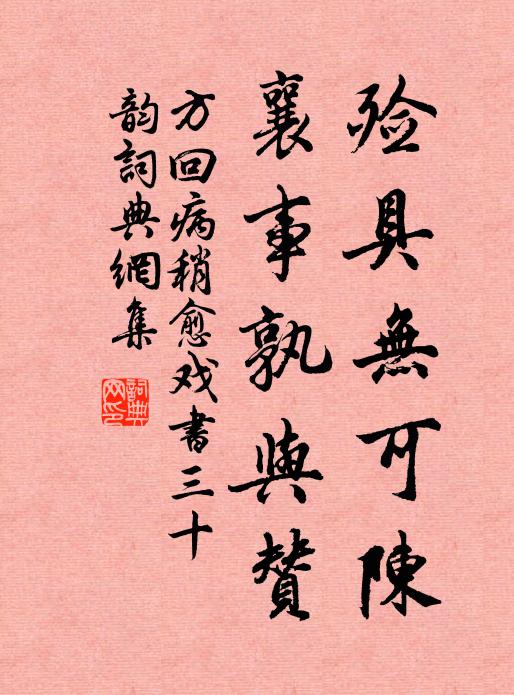 殮具無可陳
襄事孰與贊
方回病稍愈戏書三十
韵詞典網集
詞典网印